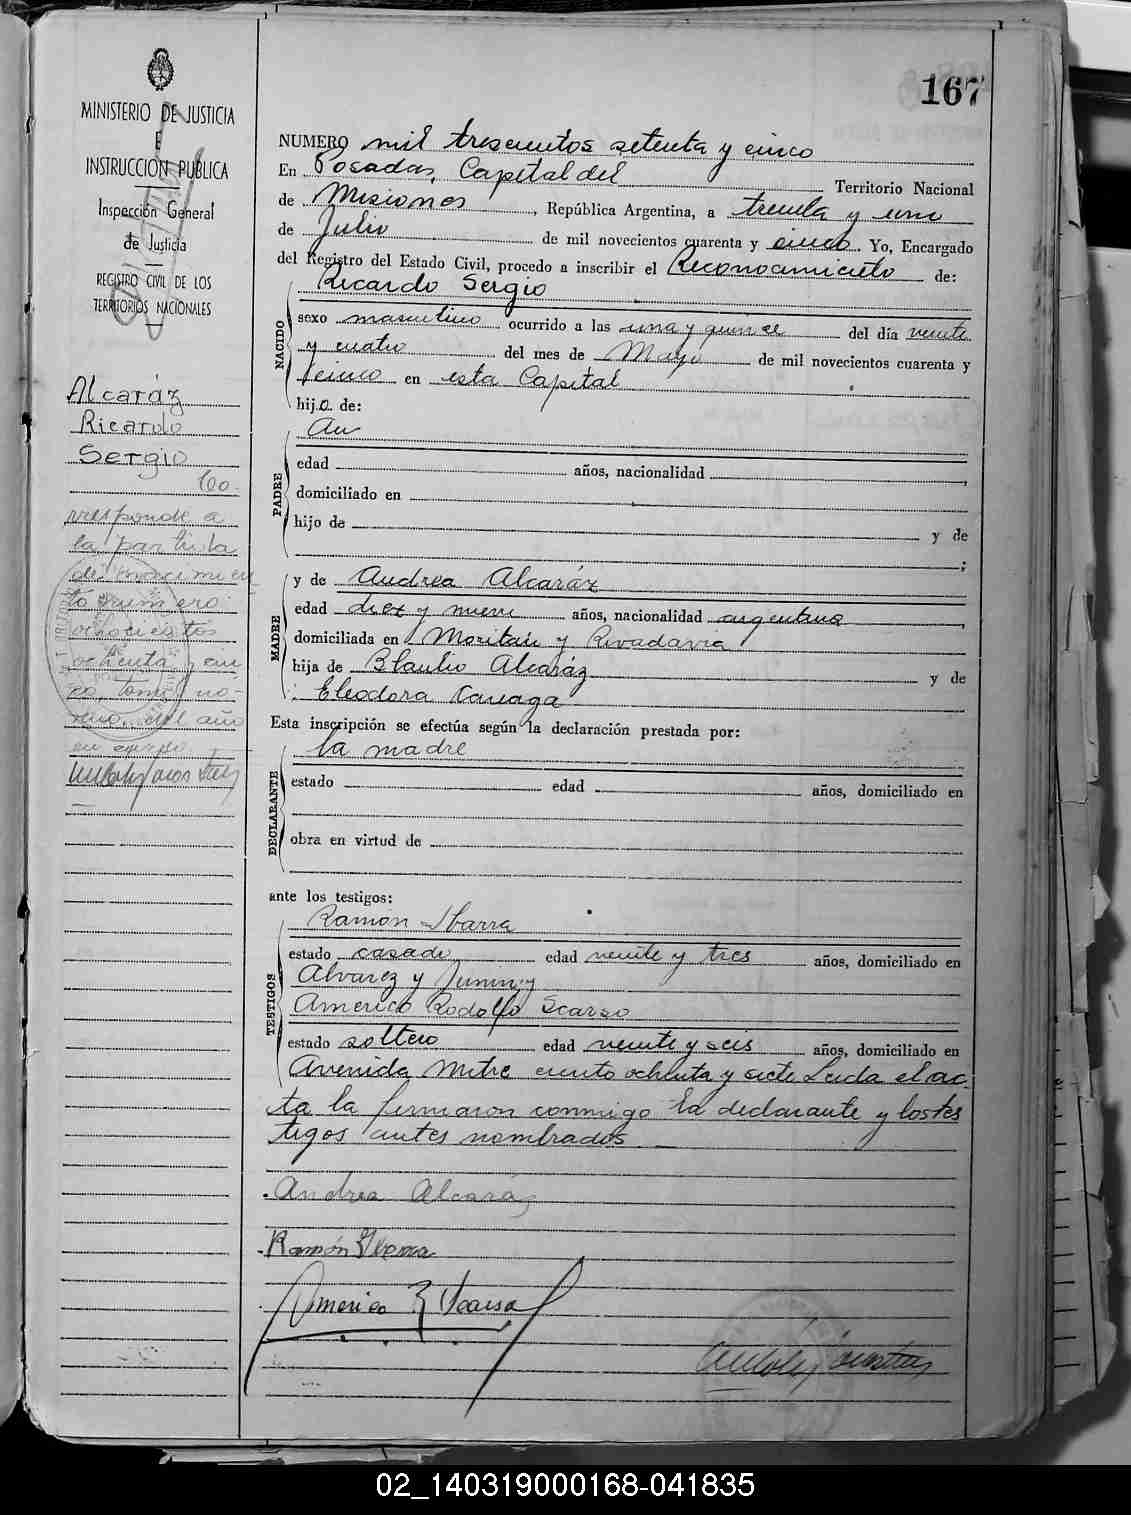 167
MINISTERIO DE JUSTICIA
E
INSTRUCCION PUBLICA
Inspección General
de Justicia
REGISTRO CIVIL DE LOS
TERRITORIOS NACIONALES
Alcaráz
Ricardo
Sergio
Co-
rresponde a
la partida
de nacimien
to número
ochocientos
ochenta y cin
co, tomo no-
veno, del año
NUMERO mil trescientos setenta y cinco
En Posadas, Capital del Territorio Nacional
de Misiones, República Argentina, a treinta y uno
de Julio de mil novecientos cuarenta y cinco. Yo, Encargado
del Registro del Estado Civil, procedo a inscribir el Reconocimiento de:
Ricardo Sergio
NACIDO
sexo masculino ocurrido a las una y quince del día veinte
y cuatro del mes de Mayo de mil novecientos cuarenta y
cinco en esta Capital
hijo de:
PADRE
edad años, nacionalidad ,
domiciliado en
hijo de y de
;
MADRE
y de Andrea Alcaráz
edad diez y nueve años, nacionalidad argentina,
domiciliada en y Rivadavia
hija de Alcaráz y de
Eleodora
Esta inscripción se efectúa según la declaración prestada por:
la madre
DECLARANTE
estado edad años, domiciliado en
obra en virtud de
ante los testigos:
TESTIGOS
Ramon Ibarra
estado casado edad veinte y tres años, domiciliado en
Alvarez y Junin y
Americo Rodolfo Scarso
estado soltero edad veinte y seis años, domiciliado en
Avenida Mitre ciento ochenta y siete Leida el ac-
ta la firmaron conmigo la declarante y los tes
tigos antes nombrados
Andrea Alcaráz
Ramón Ibarra
Americo R Scarso
02_140319000168-041835